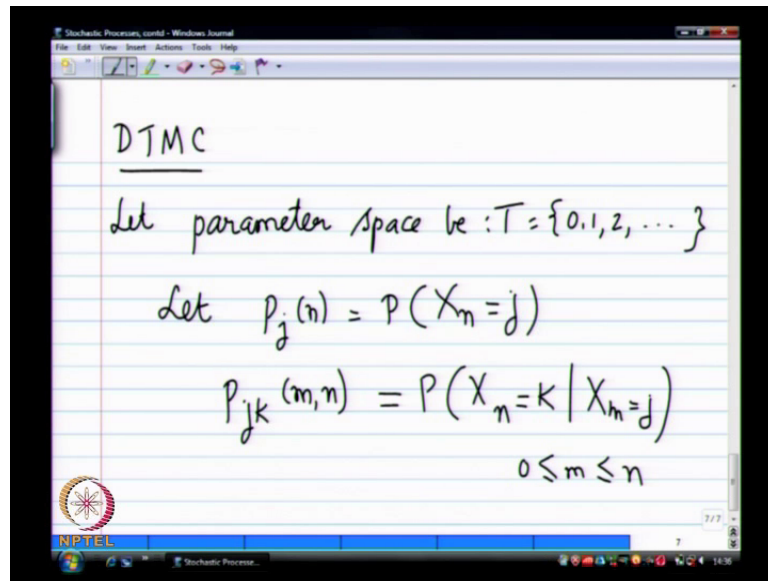 Stochastic Processes, contd - Windows Journal
File Edit View Insert Actions Tools Help
DTMC
Let parameter space be : T = {0,1,2, ... }
Let P_j (n) = P(X_n = j)
P_jk (m,n) = P(X_n = K | X_m = j)
0 ≤ m ≤ n
7/7
7
NPTEL
Stochastic Processe...
14:36